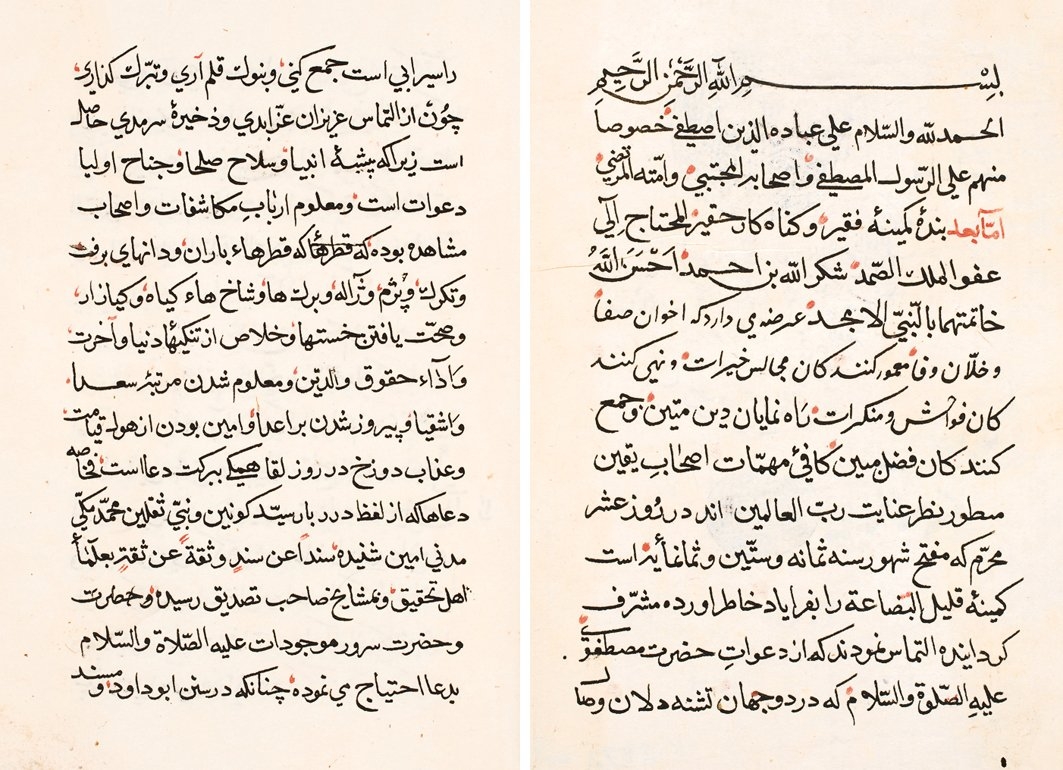 بسم الله الرحمن الرحیم
الحمد لله والسلام علی عباده الذین اصطفی خصوصا
منهم علی الرسول المصطفی واصحابه المجتبی وامته المرتضی
اما بعد بندۀ کمینۀ فقیر و کناه کار حقیر المحتاج الی
عفو الملک الصمد شکر الله بن احمد احسن الله
خاتمتهما بالنبی الامجد عرضه می دارد که اخوان صفا
و خلان وفا معمور کنند کان مجالس خیرات و نهی کنند
کان فواحش و منکرات راه نمایان دین متین و جمع
کنند کان فضل مبین کافئ مهمات اصحاب یقین
منظور نظر عنایت رب العالمین اند در روز عشر
محرم که مفتح شهور سنه ثمانه وستین وثمانمأیه است
کمینۀ قلیل البضاعة را بفرا یاد خاطر اورده مشرف
کردانیده التماس نمودند که از دعوات حضرت مصطفوی
علیه الصلوة والسلام که در دو جهان تشنه دلان وصال
را سیرابی است جمع کنی و بنوک قلم آری و تبرک کذاری
چون از التماس عزیزان عز ابدی و ذخیرۀ سرمدی حاصل
است زیرا که پیشۀ انبیا و سلاح صلحا و جناح اولیا
دعوات است و معلوم ارباب مکاشفات و اصحاب
مشاهده بوده که قطرها که قطرهاء باران و دانهای برف
و تکرک و پژم و ژاله و برک ها و شاخ هاء کیاه و کیازار
و صحت یافتن خستها و خلاص از تنکیها دنیا و آخرت
و اداء حقوق والدین و معلوم شدن مرتبۀ سعدا
و اشقیا و پیروز شدن بر اعدا و امین بودن از هول قیامت
و عذاب دوزخ در روز لقا همیکی ببرکت دعا است فخاصه
دعاها که از لفظ درر بار سید کونین و نبی ثقلین محمد مکی
مدنی امین شنیده سندا عن سند و ثقة عن ثقة بعلماأ
اهل تحقیق و بمشایخ صاحب تصدیق رسیده و حضرت
و حضرت سرور موجودات علیه الصلاة والسلام
بدعا احتیاج می نموده چنانکه در سنن ابو داود و مسند